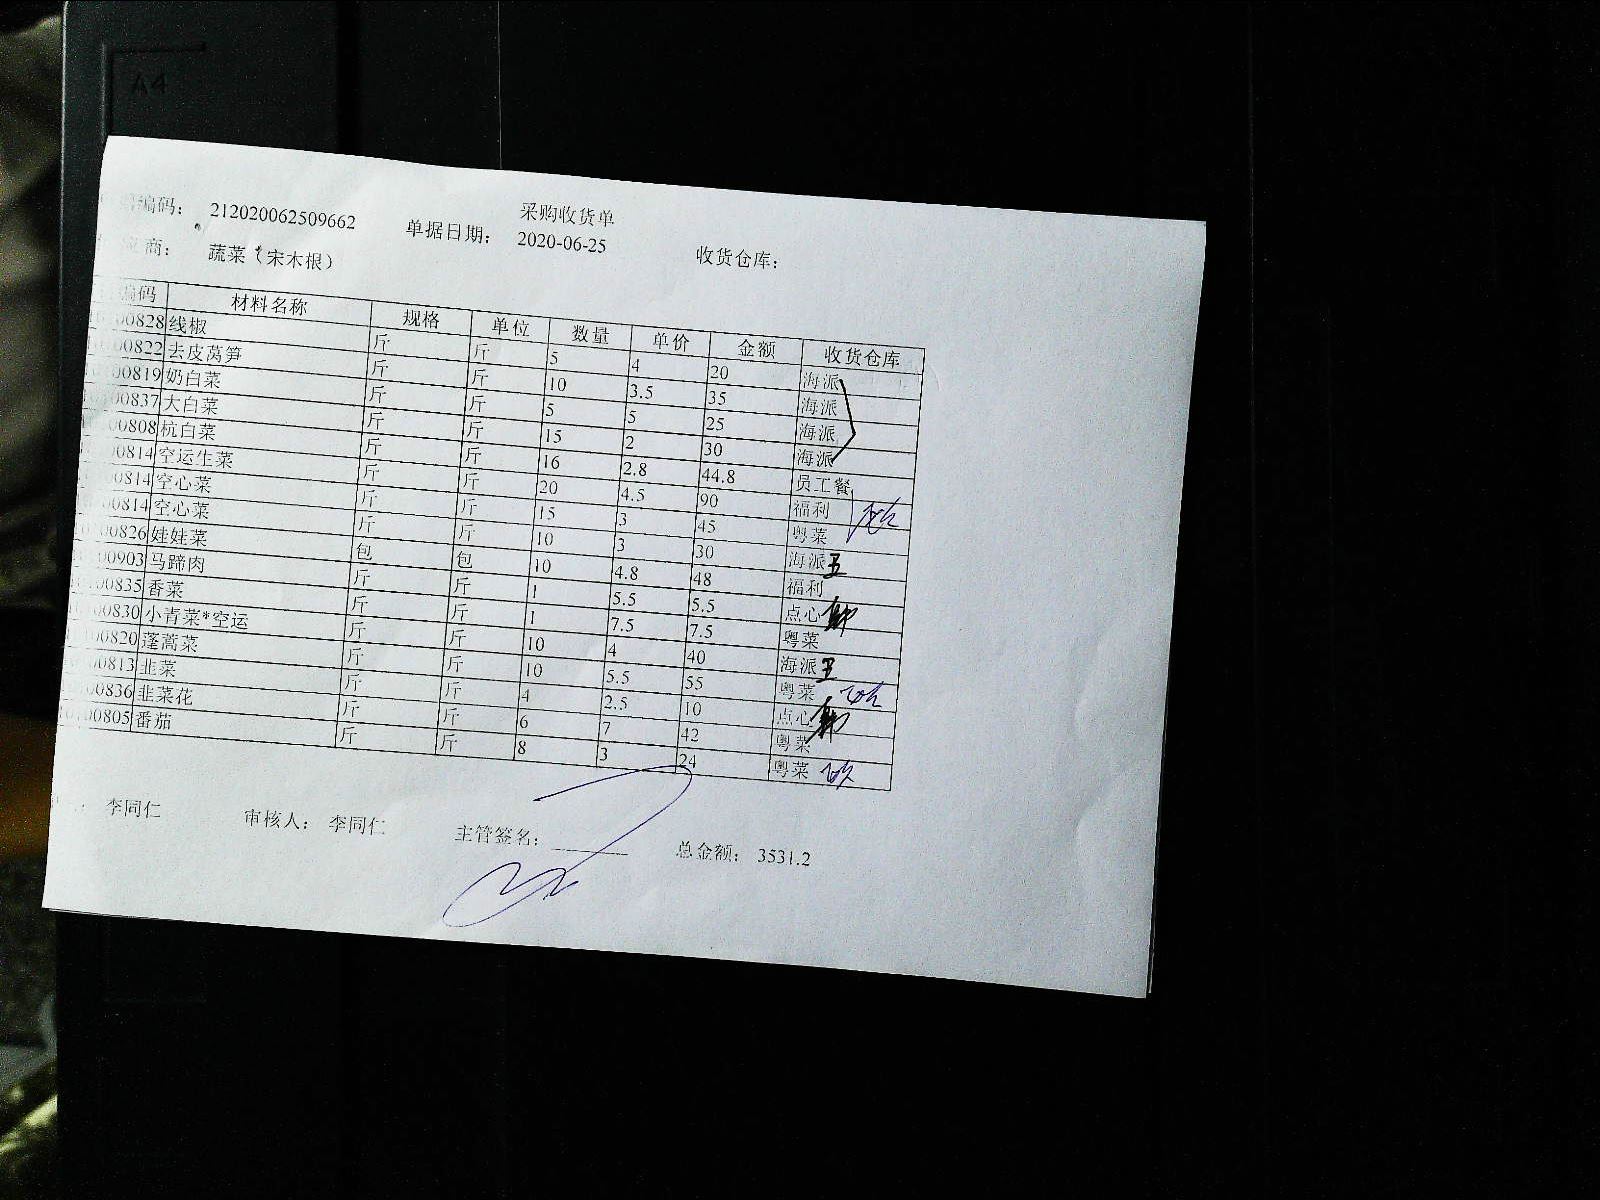 A4
采购收货单
编码： 212020062509662 单据日期： 2020-06-25 收货仓库：
商： 蔬菜（宋木根）
编码 材料名称 规格 单位 数量 单价 金额 收货仓库
00828 线椒 斤 斤 5 4 20 海派
00822 去皮莴笋 斤 斤 10 3.5 35 海派
00819 奶白菜 斤 斤 5 5 25 海派
00837 大白菜 斤 斤 15 2 30 海派
00808 杭白菜 斤 斤 16 2.8 44.8 员工餐
00814 空运生菜 斤 斤 20 4.5 90 福利
00814 空心菜 斤 斤 15 3 45 粤菜
00814 空心菜 斤 斤 10 3 30 海派
00826 娃娃菜 包 包 10 4.8 48 福利
00903 马蹄肉 斤 斤 1 5.5 5.5 点心
00835 香菜 斤 斤 1 7.5 7.5 粤菜
00830 小青菜*空运 斤 斤 10 4 40 海派
00820 蓬蒿菜 斤 斤 10 5.5 55 粤菜
00813 韭菜 斤 斤 4 2.5 10 点心
00836 韭菜花 斤 斤 6 7 42 粤菜
00805 番茄 斤 斤 8 3 24 粤菜
李同仁 审核人： 李同仁 主管签名： 总金额： 3531.2